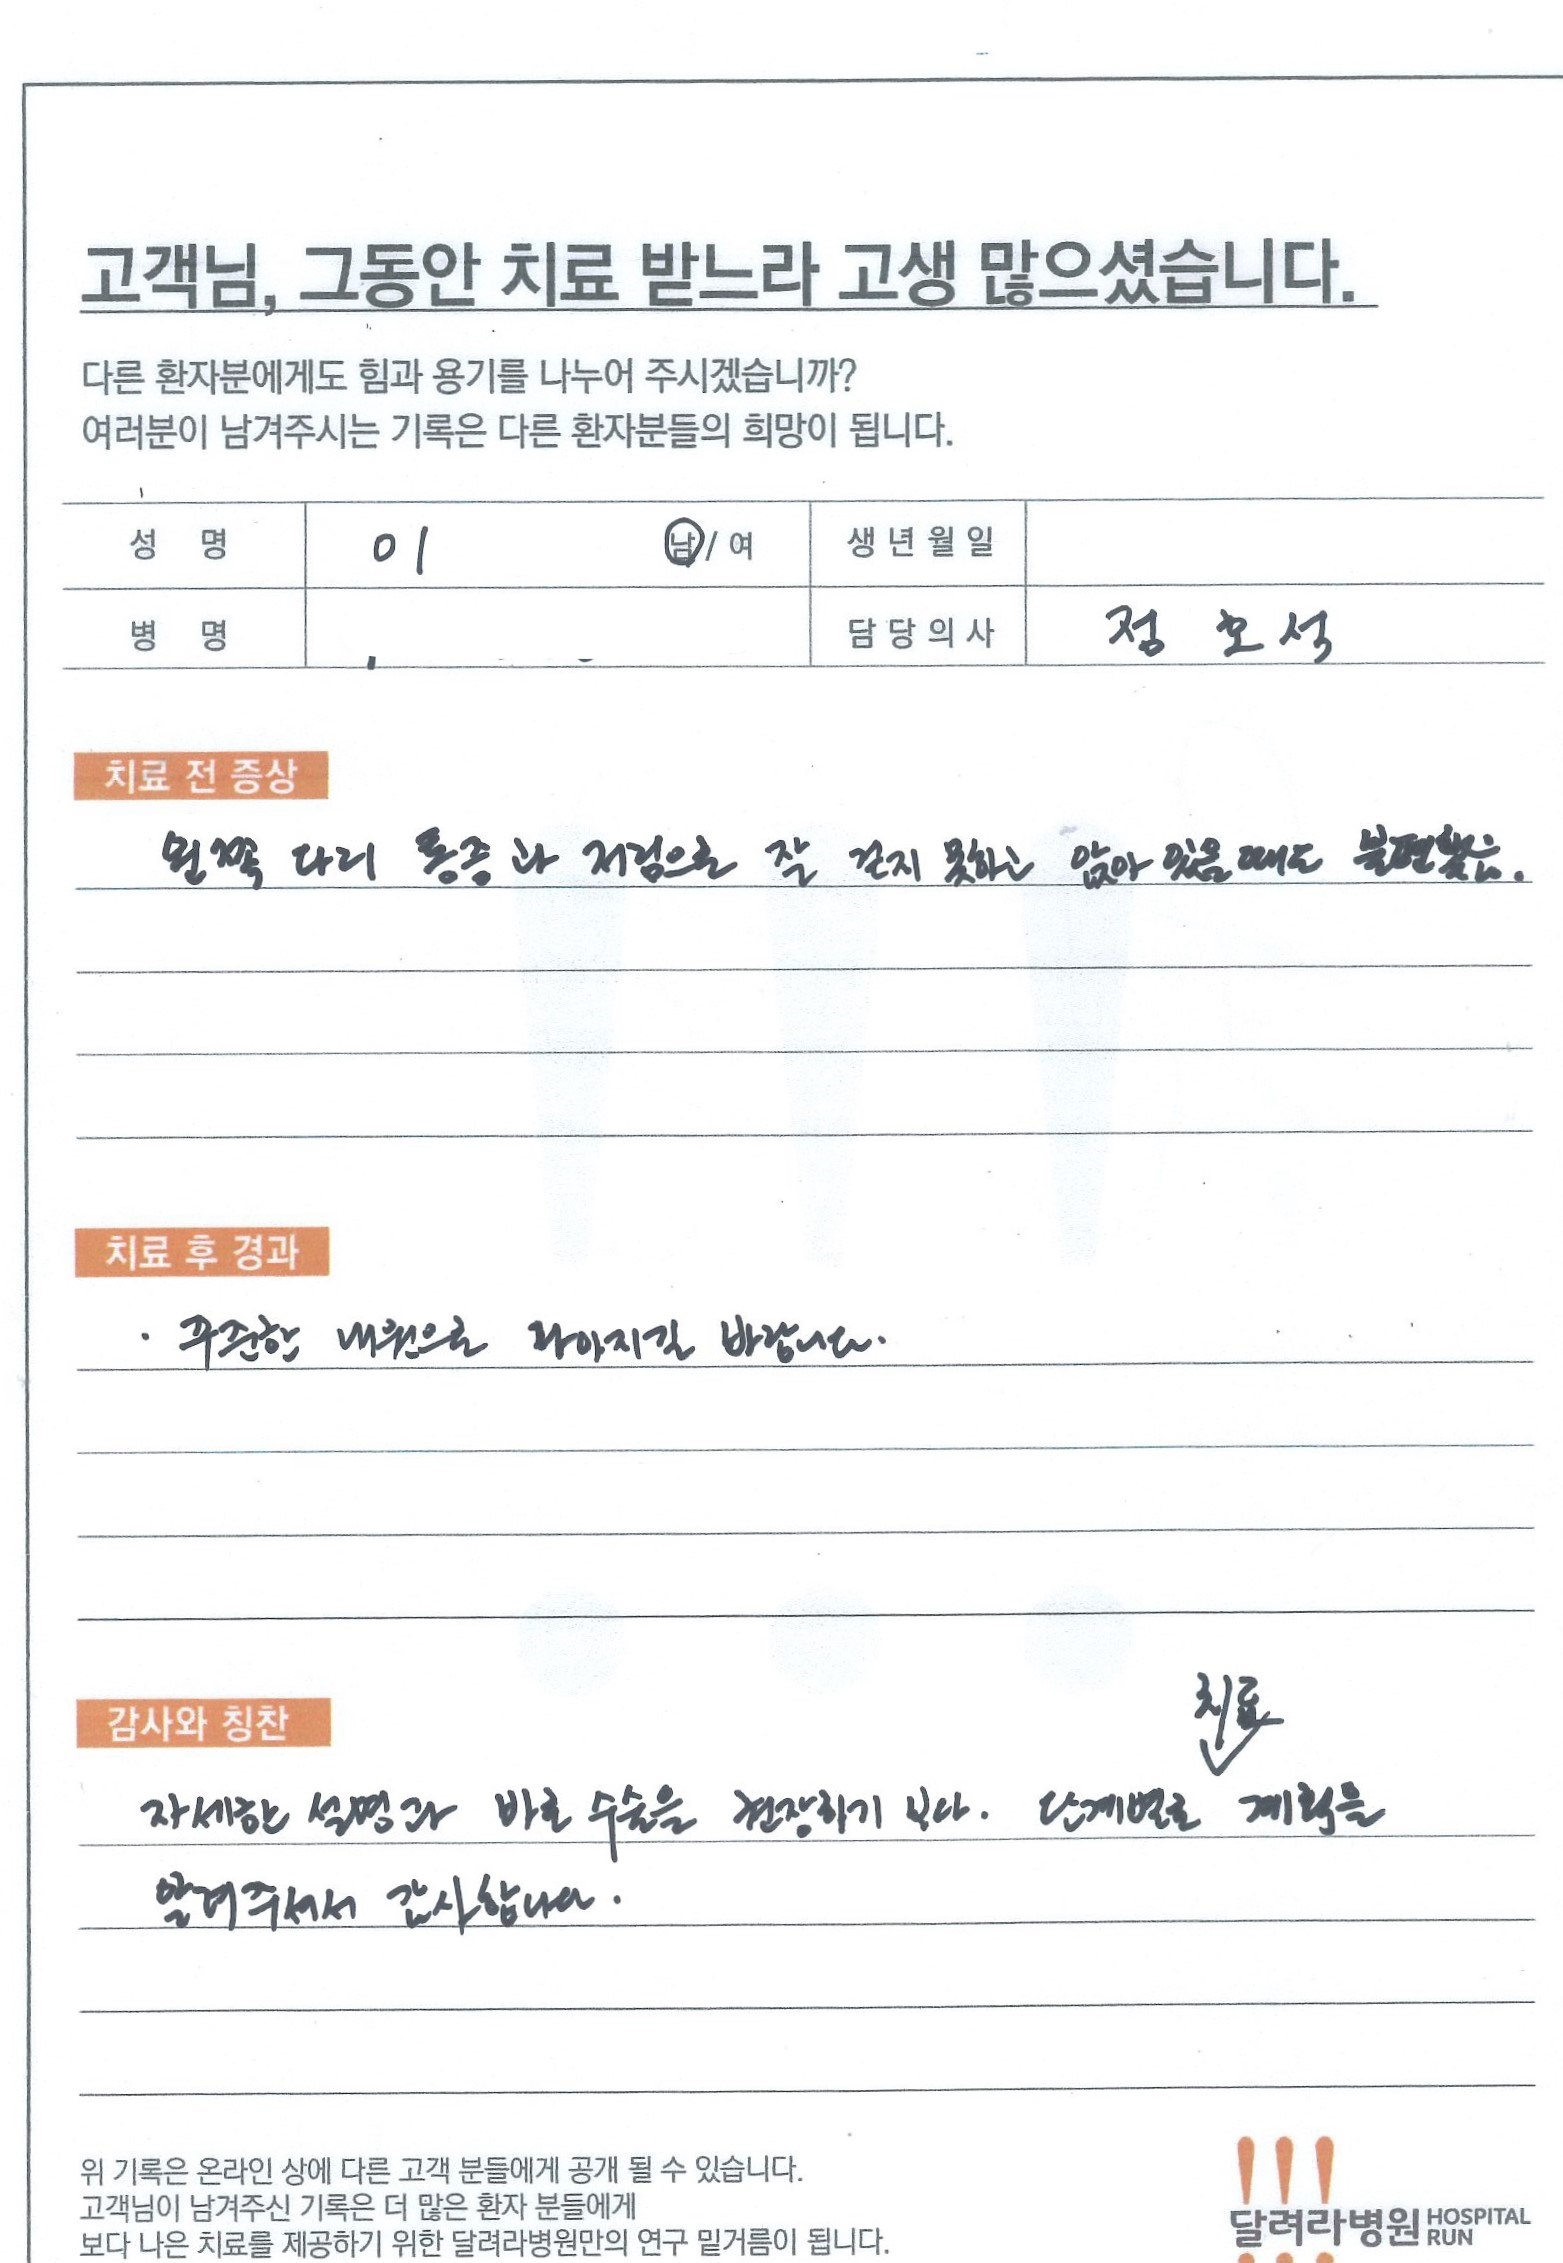 고객님, 그동안 치료 받느라 고생 많으셨습니다.
다른 환자분에게도 힘과 용기를 나누어 주시겠습니까?
여러분이 남겨주시는 기록은 다른 환자분들의 희망이 됩니다.
성 명 이 남/여 생년월일
병 명 담당의사 정호석
치료 전 증상
왼쪽 다리 통증과 저림으로 잘 걷지 못하고 앉아 있을때도 불편했음.
치료 후 경과
· 꾸준한 내원으로 나아지길 바랍니다.
감사와 칭찬
치료
자세한 설명과 바로 수술을 권장하기 보다. 단계별로 계획을
알려주셔서 감사합니다.
위 기록은 온라인 상에 다른 고객 분들에게 공개 될 수 있습니다.
고객님이 남겨주신 기록은 더 많은 환자 분들에게
보다 나은 치료를 제공하기 위한 달려라병원만의 연구 밑거름이 됩니다.
달려라병원 HOSPITAL RUN